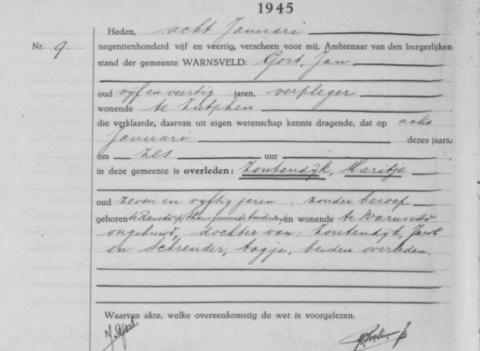 1945
Heden, acht Januari
Nr. 9 negentienhonderd vijf en veertig, verscheen voor mij, Ambtenaar van den burgerlijken
stand der gemeente WARNSVELD: Gort, Jan
oud vijf en veertig jaren, verpleger
wonende te Zutphen
die verklaarde, daarvan uit eigen wetenschap kennis dragende, dat op acht
Januari dezes jaars,
om zes uur
in deze gemeente is overleden: Zoutendijk, Maritje
oud zeven en vijftig jaren zonder beroep
geboren te en wonende te Warnsveld
ongehuwd, dochter van: Zoutendijk, Jacob
en Schreuder, Aagje, beiden overleden.
Waarvan akte, welke overeenkomstig de wet is voorgelezen.